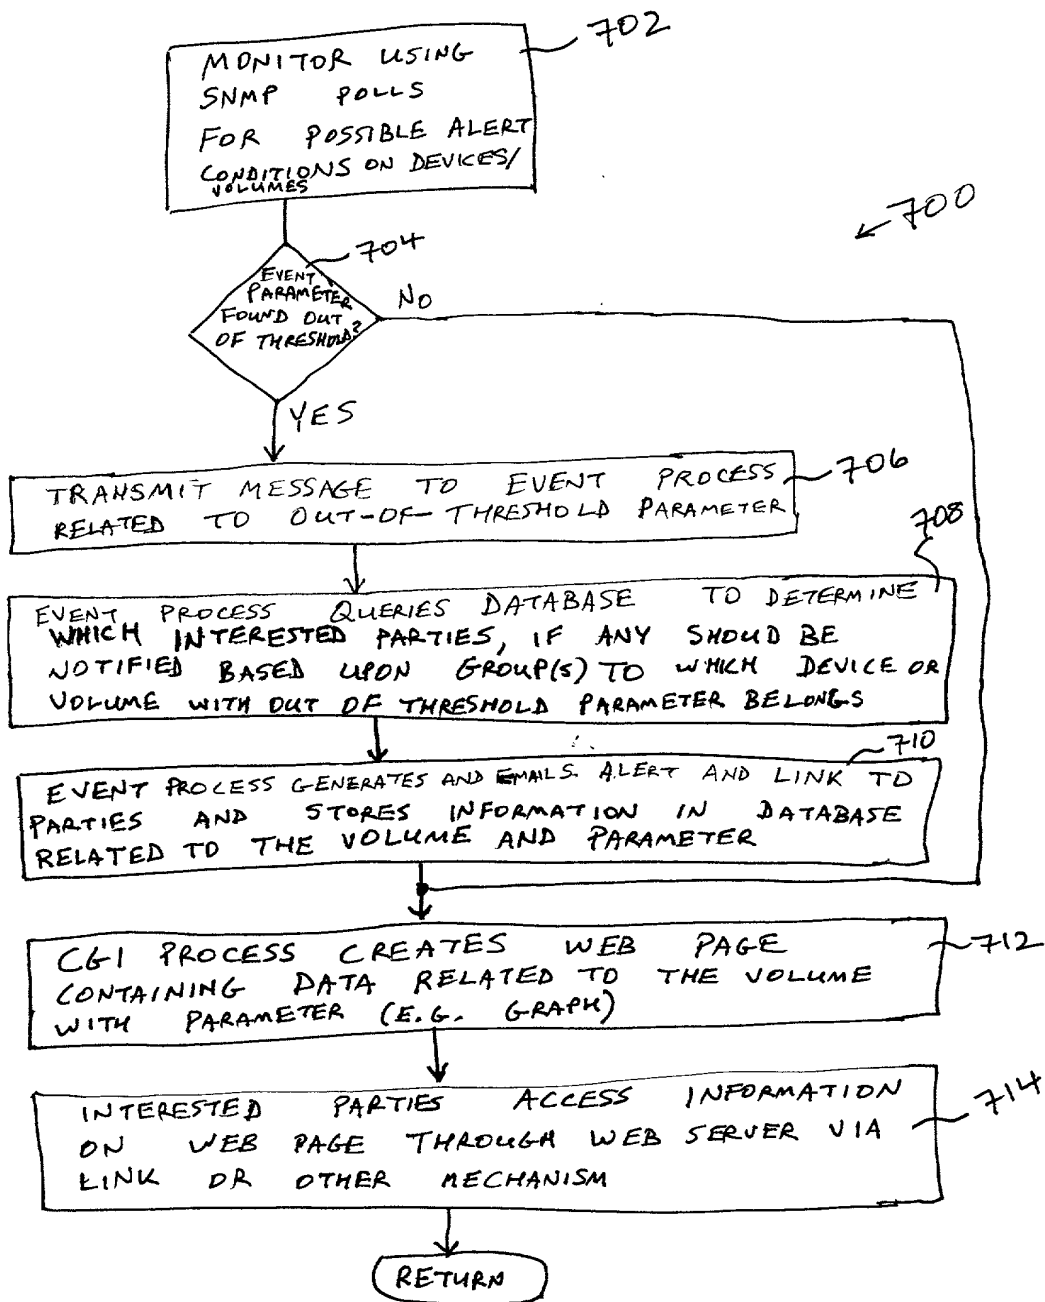 702
MONITOR USING
SNMP POLLS
FOR POSSIBLE ALERT
CONDITIONS ON DEVICES/
VOLUMES
700
704
EVENT
PARAMETER
FOUND OUT
OF THRESHOLD?
NO
YES
706
TRANSMIT MESSAGE TO EVENT PROCESS
RELATED TO OUT-OF-THRESHOLD PARAMETER
708
EVENT PROCESS QUERIES DATABASE TO DETERMINE
WHICH INTERESTED PARTIES, IF ANY SHOULD BE
NOTIFIED BASED UPON GROUP(S) TO WHICH DEVICE OR
VOLUME WITH OUT OF THRESHOLD PARAMETER BELONGS
710
EVENT PROCESS GENERATES AND EMAILS ALERT AND LINK TO
PARTIES AND STORES INFORMATION IN DATABASE
RELATED TO THE VOLUME AND PARAMETER
712
CGI PROCESS CREATES WEB PAGE
CONTAINING DATA RELATED TO THE VOLUME
WITH PARAMETER (E.G. GRAPH)
714
INTERESTED PARTIES ACCESS INFORMATION
ON WEB PAGE THROUGH WEB SERVER VIA
LINK OR OTHER MECHANISM
RETURN